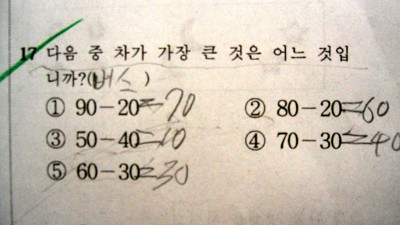 17 다음 중 차가 가장 큰 것은 어느 것입
니까?(버스)
① 90-20=70 ② 80-20=60
③ 50-40=10 ④ 70-30=40
⑤ 60-30=30